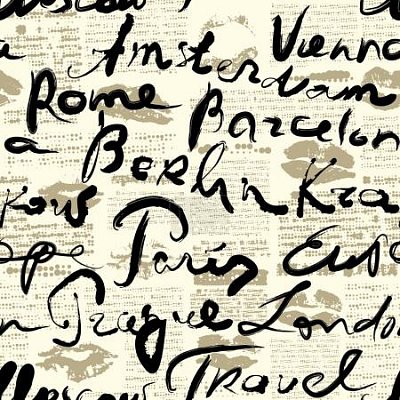 Moscow
Vienna
Amsterdam
Rome
Barcelon
a
Berlin
Kra
kow
Paris
Euro
ope
Prague
London
n
Moscow
Travel